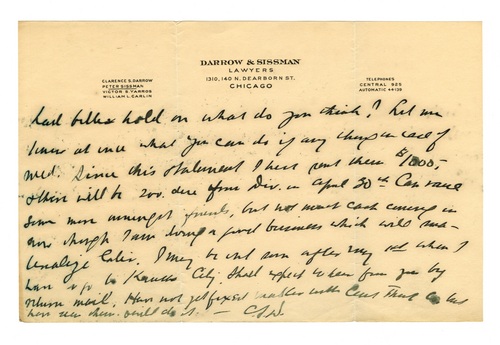 DARROW & SISSMAN
LAWYERS
1310, 140 N. DEARBORN ST.
CHICAGO
CLARENCE S. DARROW
PETER SISSMAN
VICTOR S. YARROS
WILLIAM L. CARLIN
TELEPHONES
CENTRAL 925
AUTOMATIC 44-128
had better hold on what do you think? Let me
know at once what you can do if any thing in case of
need. Since this statement I have sent them $1000,-
there will be 200. due from Div. in April 30th Can raise
some more amongst friends, but not much cash coming in
now though I am doing a good business which will
later. I may be out soon after May 1st when I
have to go to Kansas City. Shall expect to hear from you by
return mail. Have not yet fixed matter with
have seen them. will do it. —